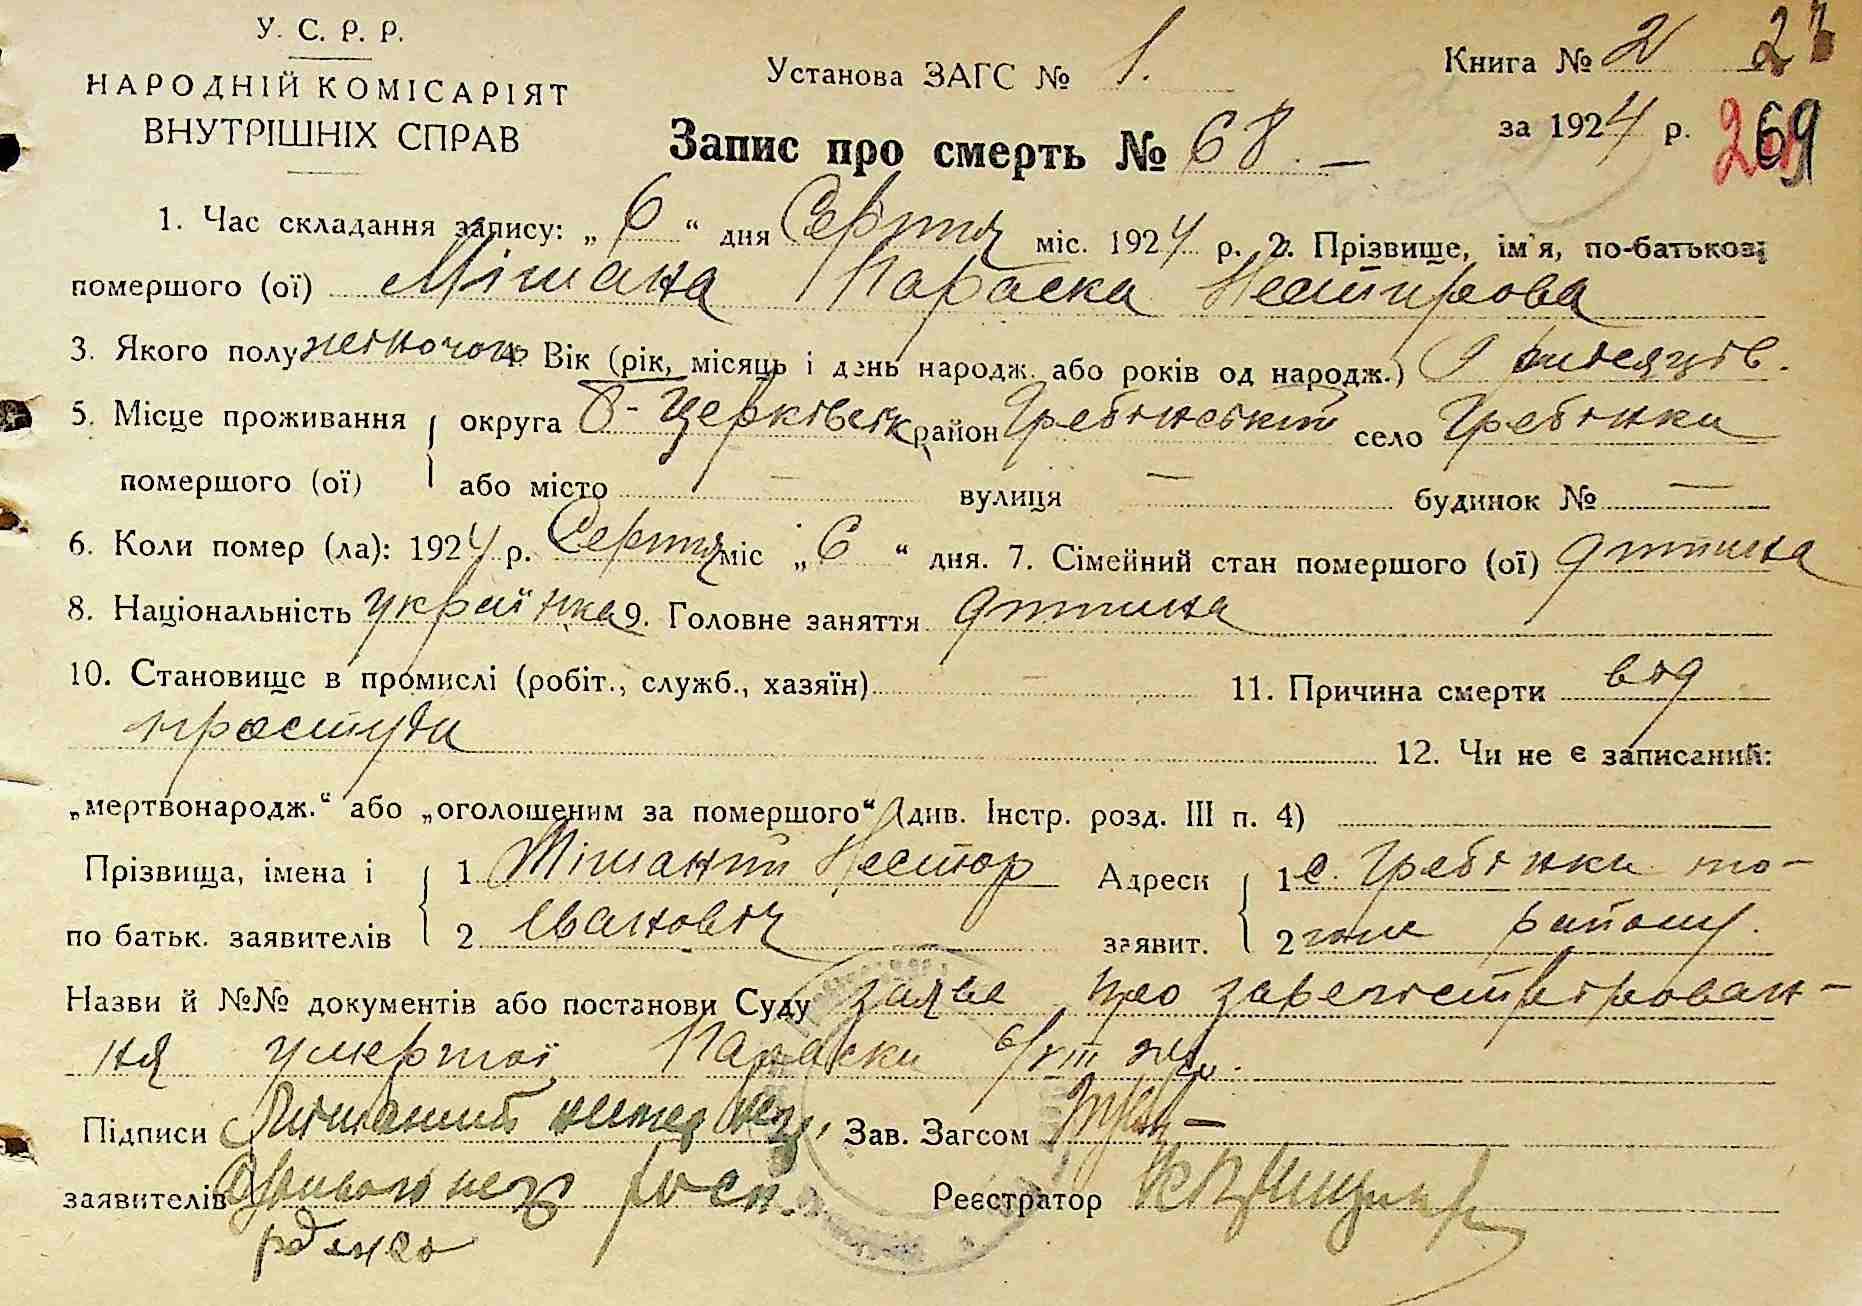 У. С. Р. Р.
НАРОДНІЙ КОМІСАРІЯТ
ВНУТРІШНІХ СПРАВ
Установа ЗАГС № 1.
Книга № 2 23
за 1924 р. 269
Запис про смерть № 68. —
1. Час складання запису: „6“ дня Серпня міс. 1924 р. 2. Прізвище, ім'я, по-батькові
помершого (ої) Мішана Параска Нестирова
3. Якого полу жіночого 4. Вік (рік, місяць і день народж. або років од народж.) 9 місяців.
5. Місце проживання округа Б-Церківськ район Гребінський село Гребінки
помершого (ої) або місто — вулиця — будинок № —
6. Коли помер (ла): 1924 р. Серпня міс „6“ дня. 7. Сімейний стан помершого (ої) дитина
8. Національність українка 9. Головне заняття дитина
10. Становище в промислі (робіт., служб., хазяїн) — 11. Причина смерти від
простуди 12. Чи не є записаний:
„мертвонародж.“ або „оголошеним за помершого“ (див. Інстр. розд. III п. 4)
Прізвища, імена і 1 Мішаний Нестор Адреси 1 с. Гребінки то-
по батьк. заявителів 2 Іванович заявит. 2 гож району.
Назви й №№ документів або постанови Суду заява про зарегістрірован-
ня умершої Параски 6/VIII
Підписи Мішаний Зав. Загсом
заявителів Реєстратор